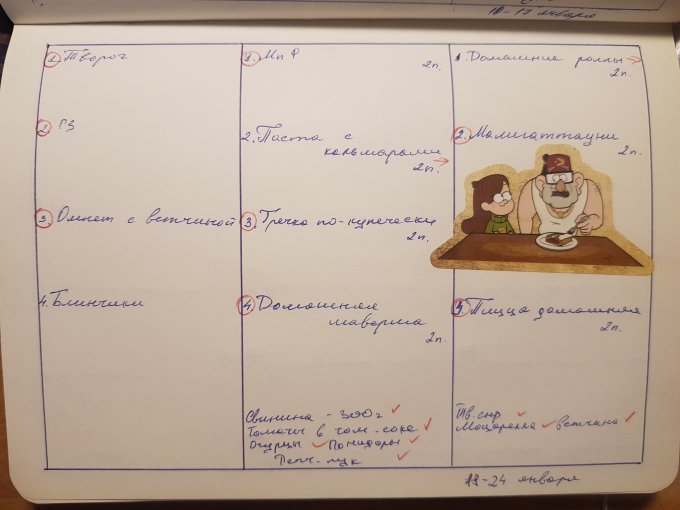 10-17 января
1. Творог
2. ГЗ
3. Омлет с ветчиной
4. Блинчики
1. Мп Ф
2п.
2. Паста с
кальмарами
2п.
3. Гречка по-купечески
2п.
4. Домашняя
шаверма
2п.
Свинина - 300г
Томаты в том. соке
Огурцы Помидоры
1. Домашние роллы
2п.
2. Малигаттауни
2п.
Пицца домашняя
2п.
Тв. сыр
Моцарелла ветчина
18-24 января